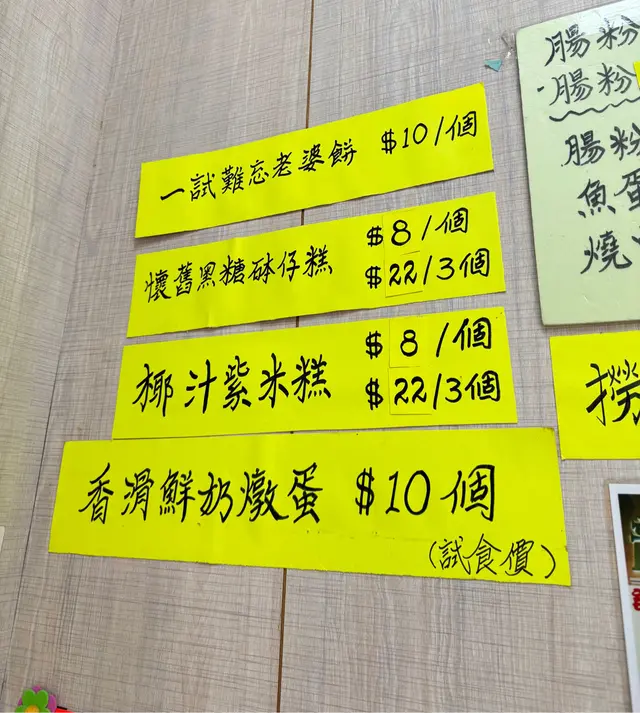 一試難忘老婆餅 $10/個
懷舊黑糖砵仔糕 $8/個
$22/3個
椰汁紫米糕 $8/個
$22/3個
香滑鮮奶燉蛋 $10個
(試食價)
腸粉
腸粉
腸粉
魚蛋
燒
撈